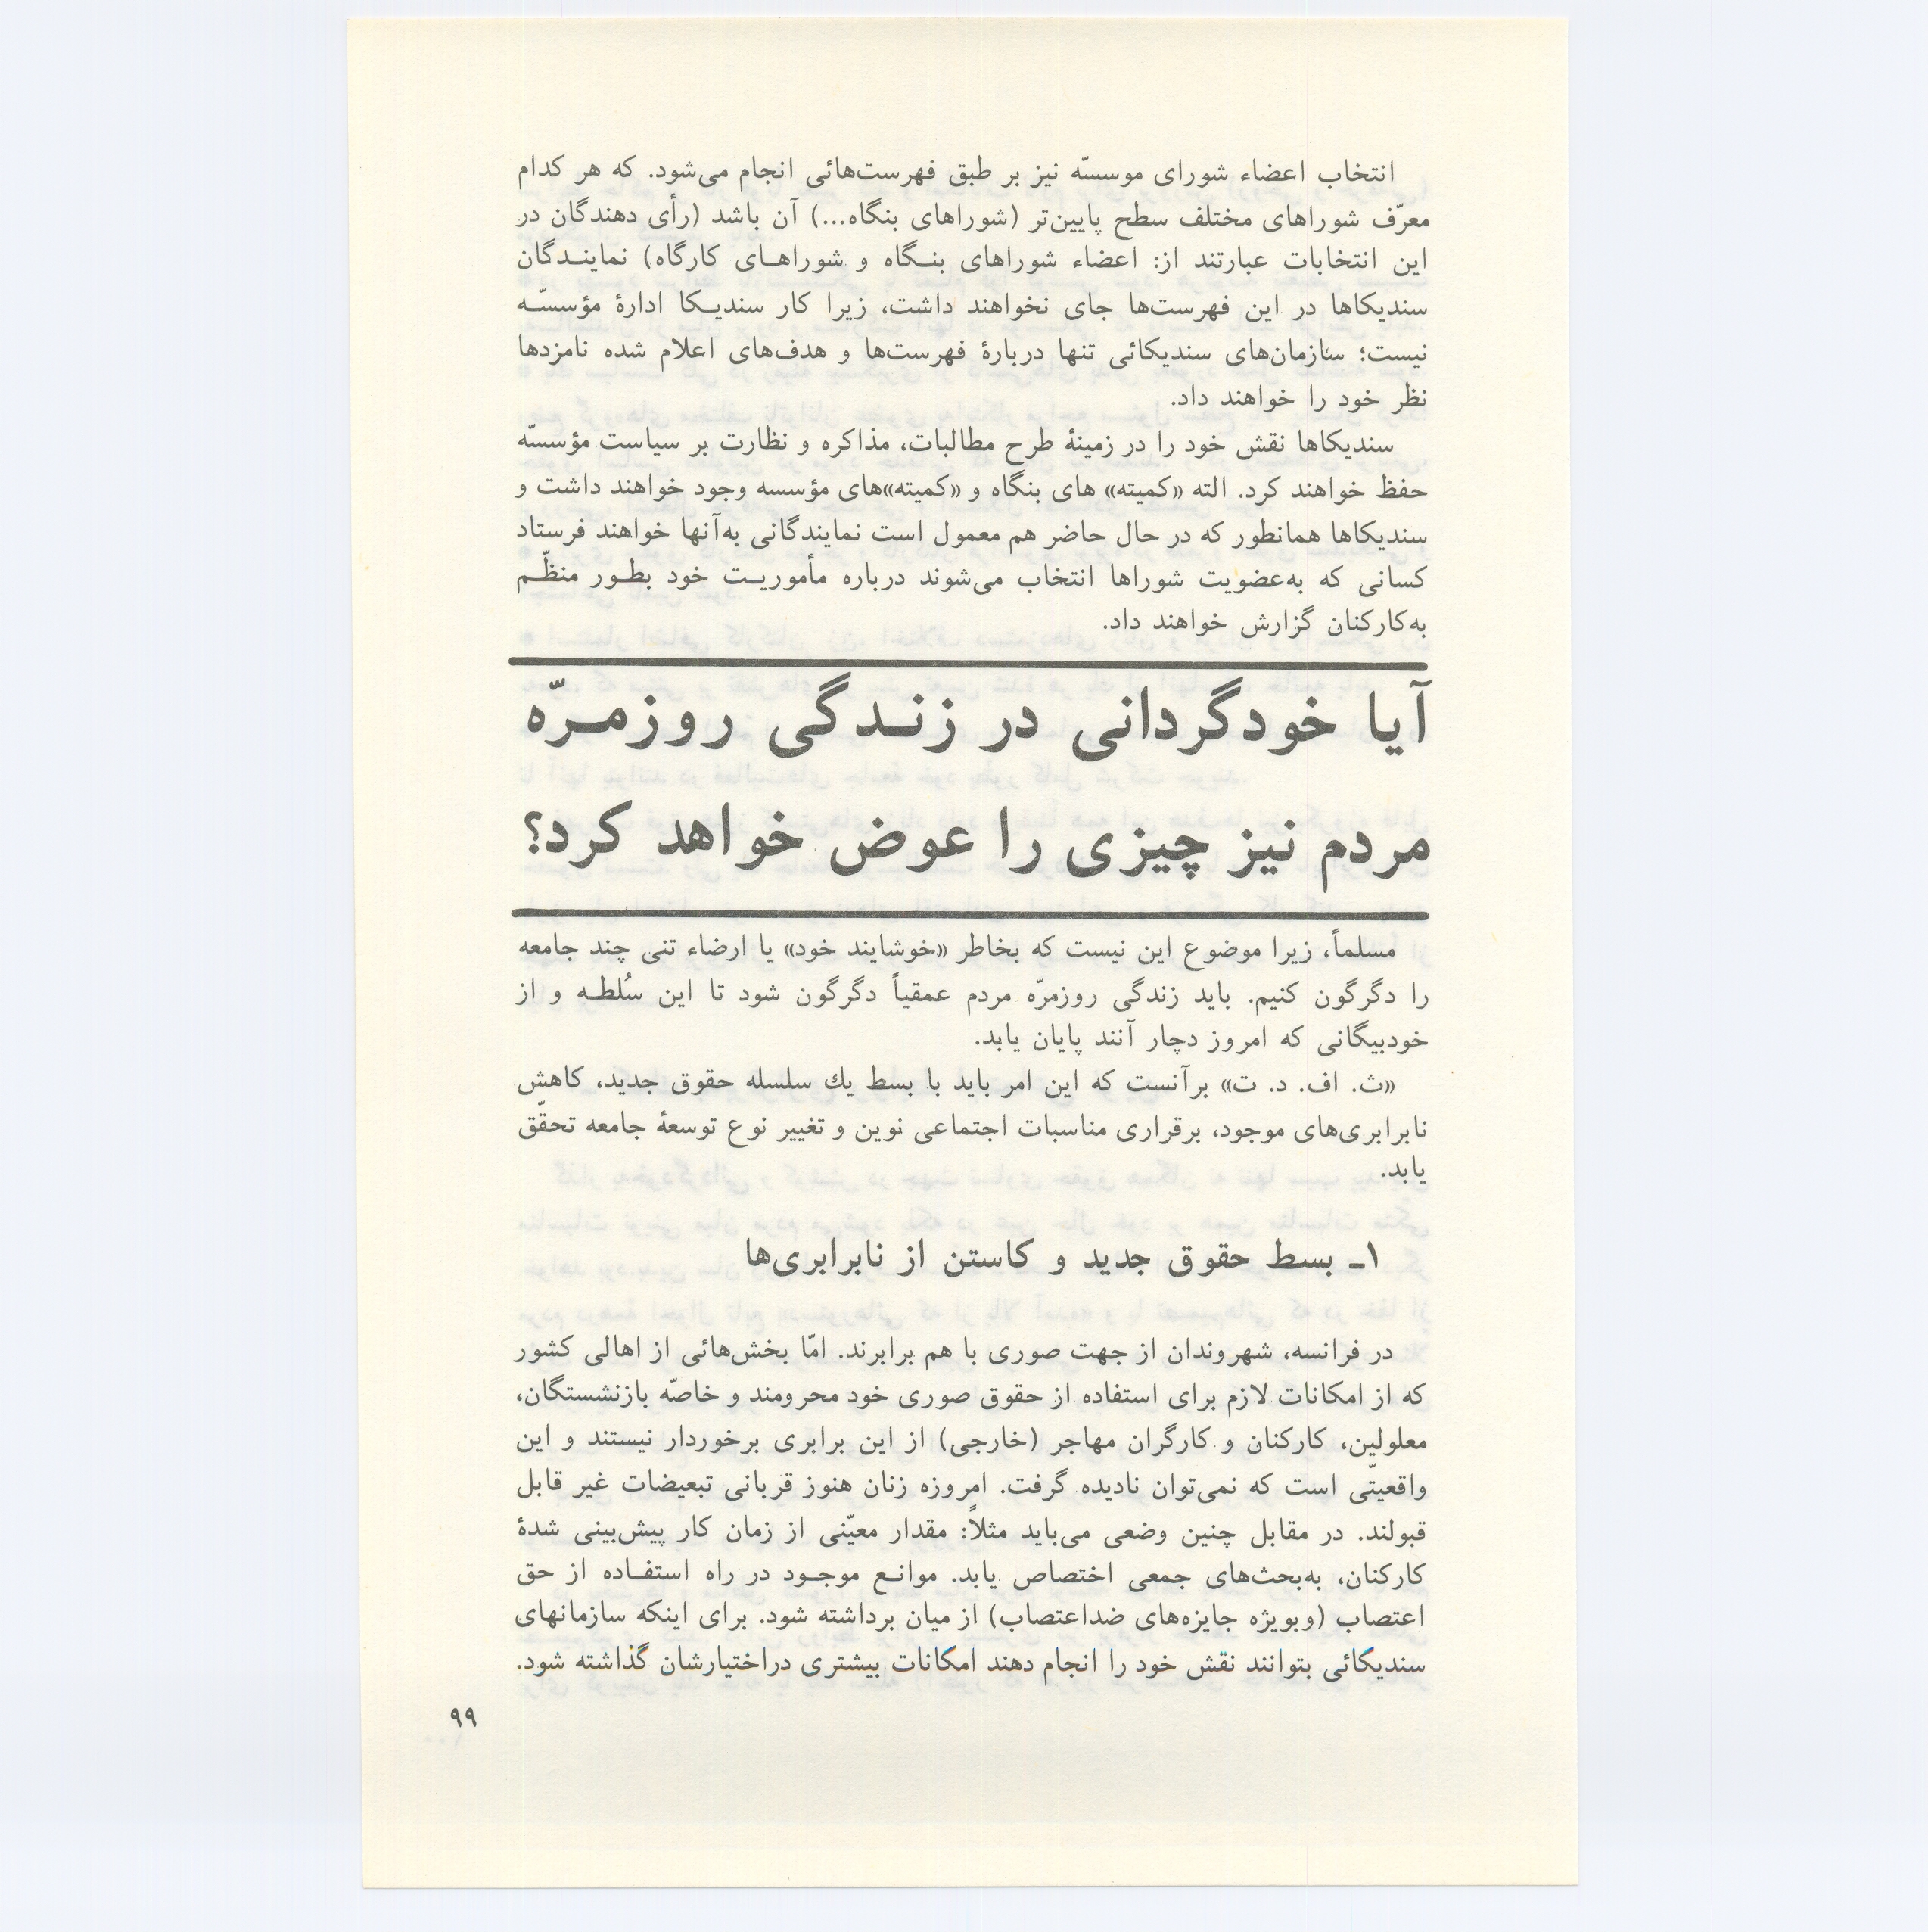 انتخاب اعضاء شورای موسسّه نیز بر طبق فهرست‌هائی انجام می‌شود. که هر کدام
معرّف شوراهای مختلف سطح پایین‌تر (شوراهای بنگاه...) آن باشد (رأی دهندگان در
این انتخابات عبارتند از: اعضاء شوراهای بنـگاه و شوراهـای کارگاه) نماینـدگان
سندیکاها در این فهرست‌ها جای نخواهند داشت، زیرا کار سندیـکا ادارهٔ مؤسسّـه
نیست؛ سازمان‌های سندیکائی تنها دربارهٔ فهرست‌ها و هدف‌های اعلام شده نامزدها
نظر خود را خواهند داد.
سندیکاها نقش خود را در زمینهٔ طرح مطالبات، مذاکره و نظارت بر سیاست مؤسسّه
حفظ خواهند کرد. الته «کمیته» های بنگاه و «کمیته»های مؤسسه وجود خواهند داشت و
سندیکاها همانطور که در حال حاضر هم معمول است نمایندگانی به‌آنها خواهند فرستاد
کسانی که به‌عضویت شوراها انتخاب می‌شوند درباره مأموریـت خود بطـور منظّـم
به‌کارکنان گزارش خواهند داد.
آیا خودگردانی در زنـدگی روزمـرّه
مردم نیز چیزی را عوض خواهد کرد؟
مسلماً، زیرا موضوع این نیست که بخاطر «خوشایند خود» یا ارضاء تنی چند جامعه
را دگرگون کنیم. باید زندگی روزمرّه مردم عمقیاً دگرگون شود تا این سُلطـه و از
خودبیگانی که امروز دچار آنند پایان یابد.
«ث. اف. د. ت» برآنست که این امر باید با بسط یك سلسله حقوق جدید، کاهش
نابرابری‌های موجود، برقراری مناسبات اجتماعی نوین و تغییر نوع توسعهٔ جامعه تحقّق
یابد.
۱ـ بسط حقوق جدید و کاستن از نابرابری‌ها
در فرانسه، شهروندان از جهت صوری با هم برابرند. امّا بخش‌هائی از اهالی کشور
که از امکانات لازم برای استفاده از حقوق صوری خود محرومند و خاصّه بازنشستگان،
معلولین، کارکنان و کارگران مهاجر (خارجی) از این برابری برخوردار نیستند و این
واقعیتّی است که نمی‌توان نادیده گرفت. امروزه زنان هنوز قربانی تبعیضات غیر قابل
قبولند. در مقابل چنین وضعی می‌باید مثلاً: مقدار معیّنی از زمان کار پیش‌بینی شدهٔ
کارکنان، به‌بحث‌های جمعی اختصاص یابد. موانـع موجـود در راه استفـاده از حق
اعتصاب (وبویژه جایزه‌های ضداعتصاب) از میان برداشته شود. برای اینکه سازمانهای
سندیکائی بتوانند نقش خود را انجام دهند امکانات بیشتری دراختیارشان گذاشته شود.
۹۹